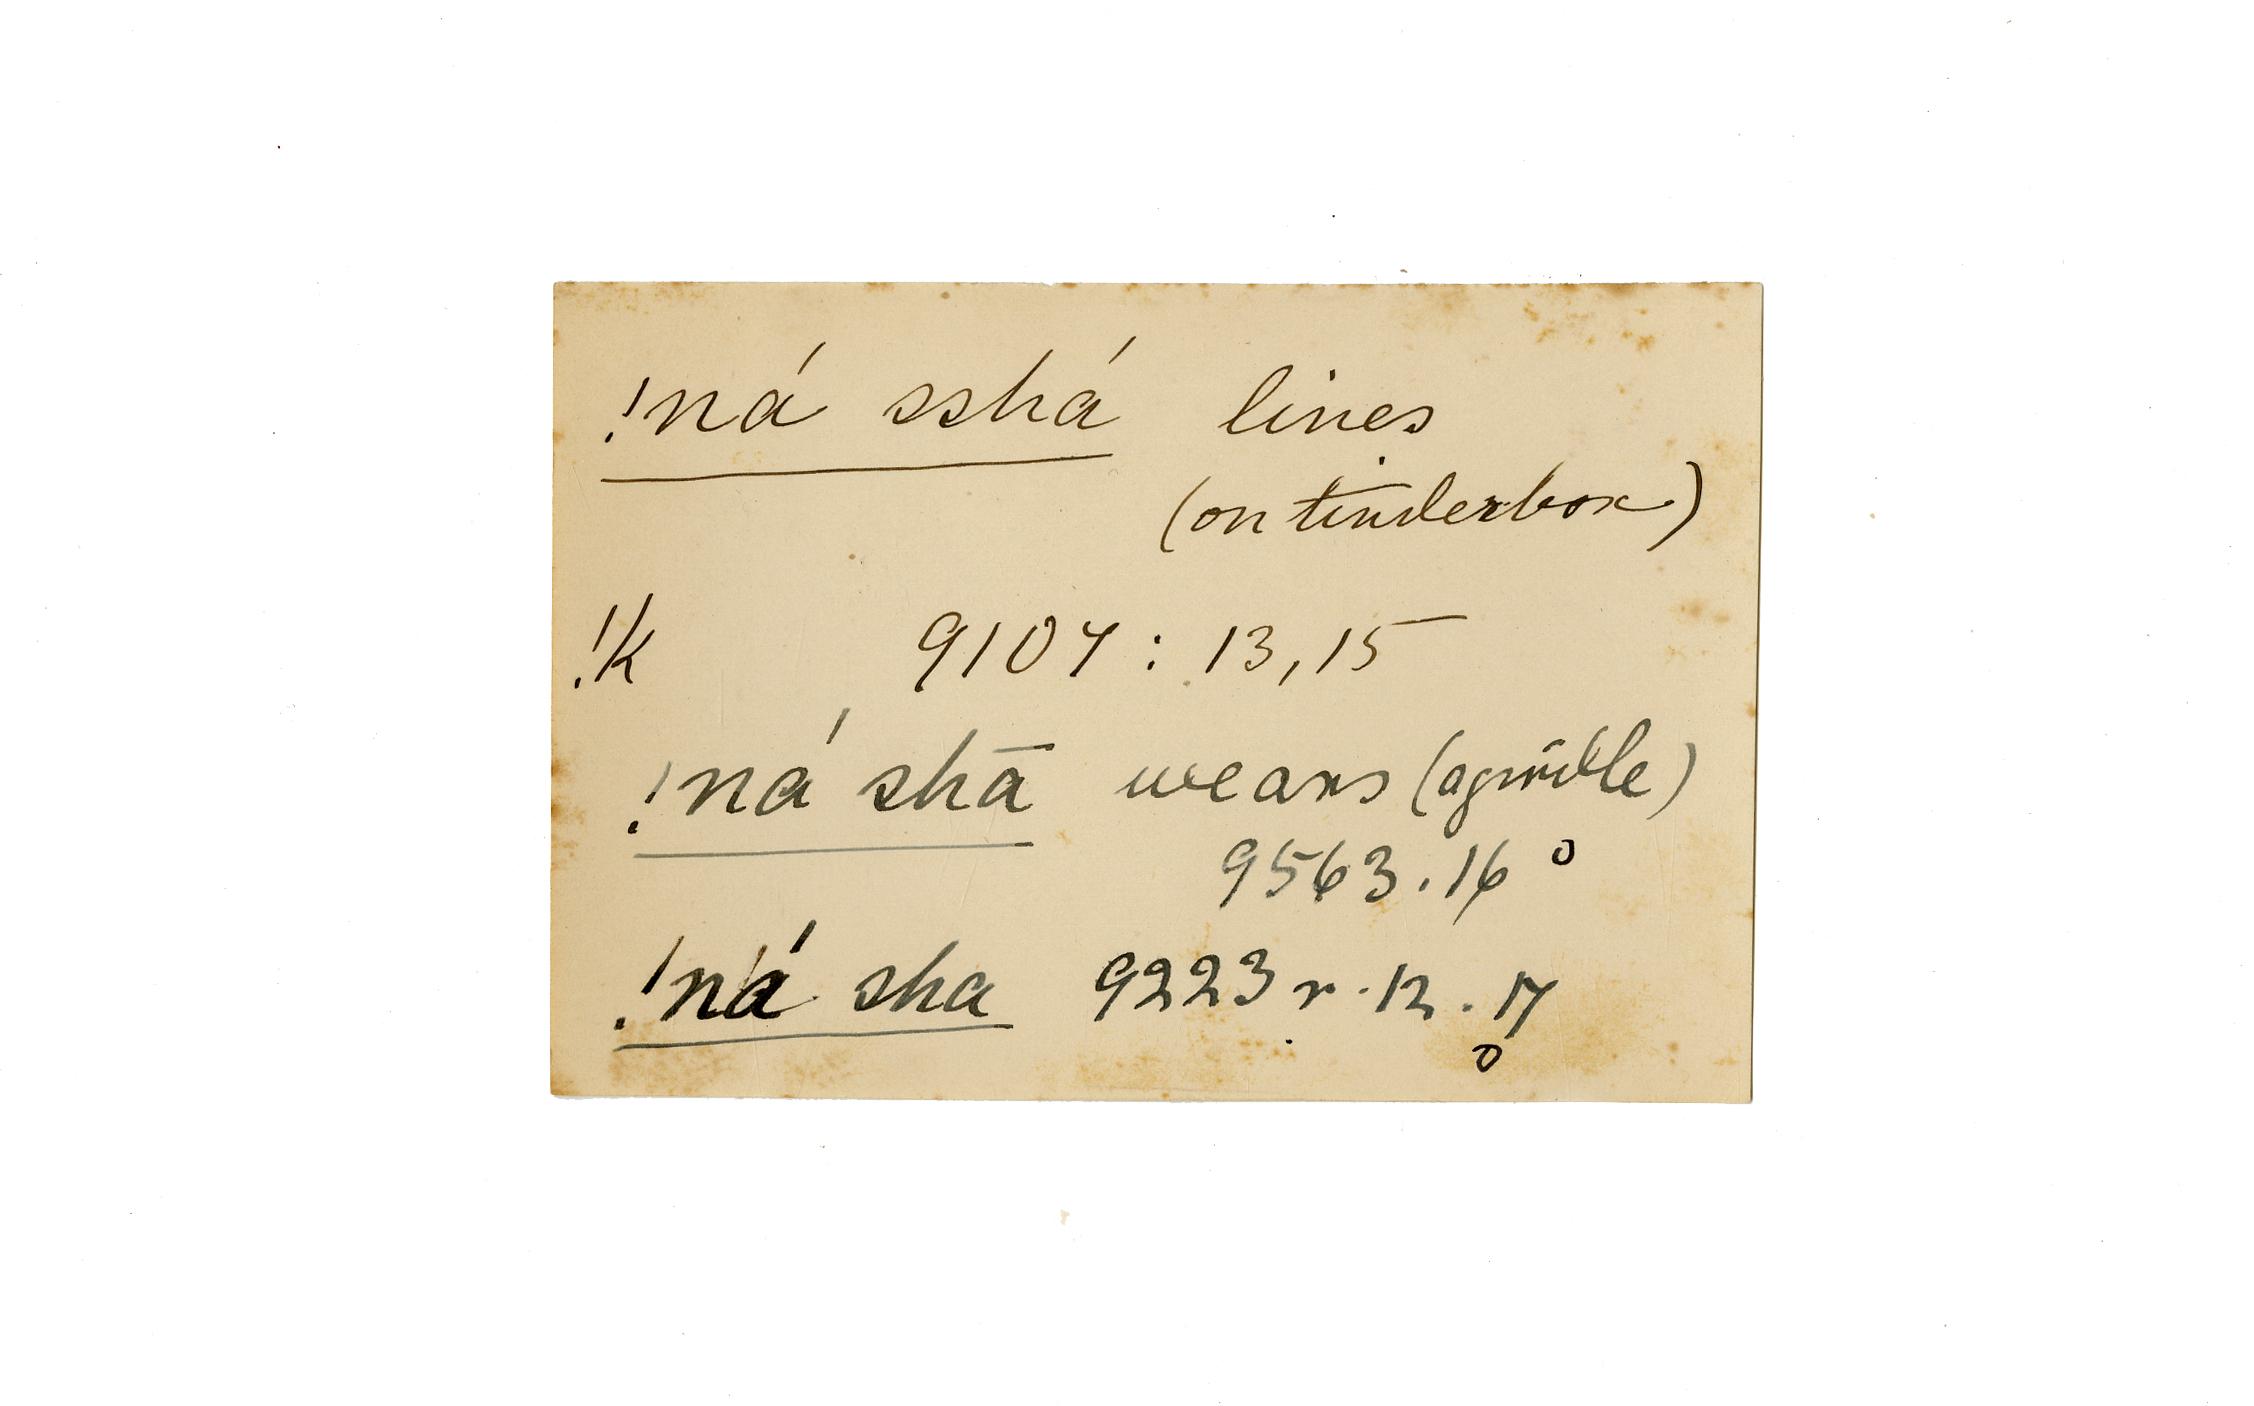 !ná sshá lines
(on tinderbox)
!k 9107 : 13, 15
!ná shā wears (a girdle)
9563 . 16 o
!ná sha 9223 r . 12 . 17
o